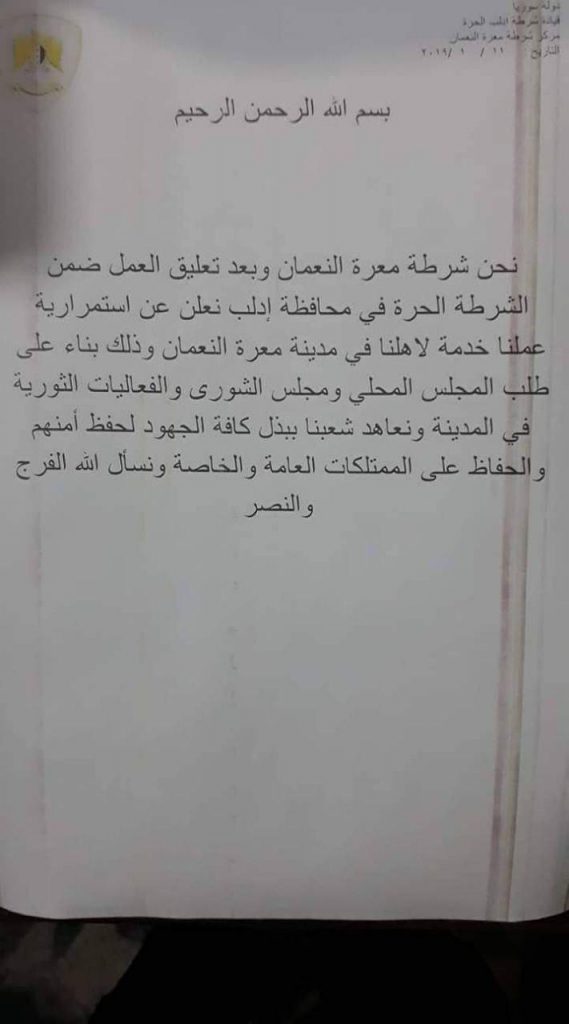 دولة سوريا
قيادة شرطة ادلب الحرة
مركز شرطة معرة النعمان
التاريخ : ١١ / ١ /٢٠١٩
بسم الله الرحمن الرحيم
نحن شرطة معرة النعمان وبعد تعليق العمل ضمن
الشرطة الحرة في محافظة إدلب نعلن عن استمرارية
عملنا خدمة لاهلنا في مدينة معرة النعمان وذلك بناء على
طلب المجلس المحلي ومجلس الشورى والفعاليات الثورية
في المدينة ونعاهد شعبنا ببذل كافة الجهود لحفظ أمنهم
والحفاظ على الممتلكات العامة والخاصة ونسأل الله الفرج
والنصر